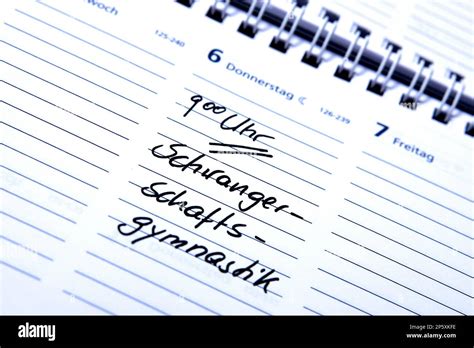 woch
125-240
6 Donnerstag ☾
126-239
7 Freitag
9 00 Uhr
Schwanger-
schafts-
gymnastik
alamy
alamy
Image ID: 2P5XXFE
www.alamy.com